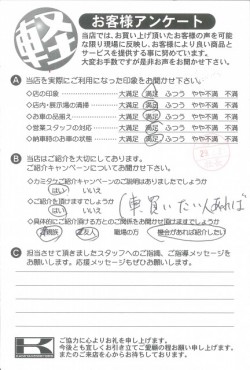 軽
お客様アンケート
当店では、お買い上げ頂いたお客様の声を可能
な限り現場に反映し、お客様により良い商品と
サービスを提供する事に努めています。
大変お手数ですが是非お声をお聞かせ下さい。
A 当店を実際にご利用になった印象をお聞かせ下さい。
◇店の印象 大満足 満足 ふつう やや不満 不満
◇店内・展示場の清掃 大満足 満足 ふつう やや不満 不満
◇お車の品揃え 大満足 満足 ふつう やや不満 不満
◇営業スタッフの対応 大満足 満足 ふつう やや不満 不満
◇納車時のお車の状態 大満足 満足 ふつう やや不満 不満
B 当店はご紹介を大切にしております。
ご紹介キャンペーンについてお聞かせ下さい。
◇カミタウご紹介キャンペーンの説明はありましたでしょうか
はい いいえ
◇ご紹介を頂けますでしょうか
はい いいえ
(車、買いたい人あれば
◇具体的にご紹介頂ける方とのご関係をお聞かせ頂けますでしょうか
ご親族 ご友人 職場の方 機会があれば紹介したい
C 担当させて頂きましたスタッフへのご指摘、ご指導メッセージを
お願いします。応援メッセージもぜひお願いします。
K
ご協力に心よりお礼を申し上げます。
今後とも宜しくお引き立てご愛顧の程お願い申し上げます。
またのご来店を心からお待ちしております。